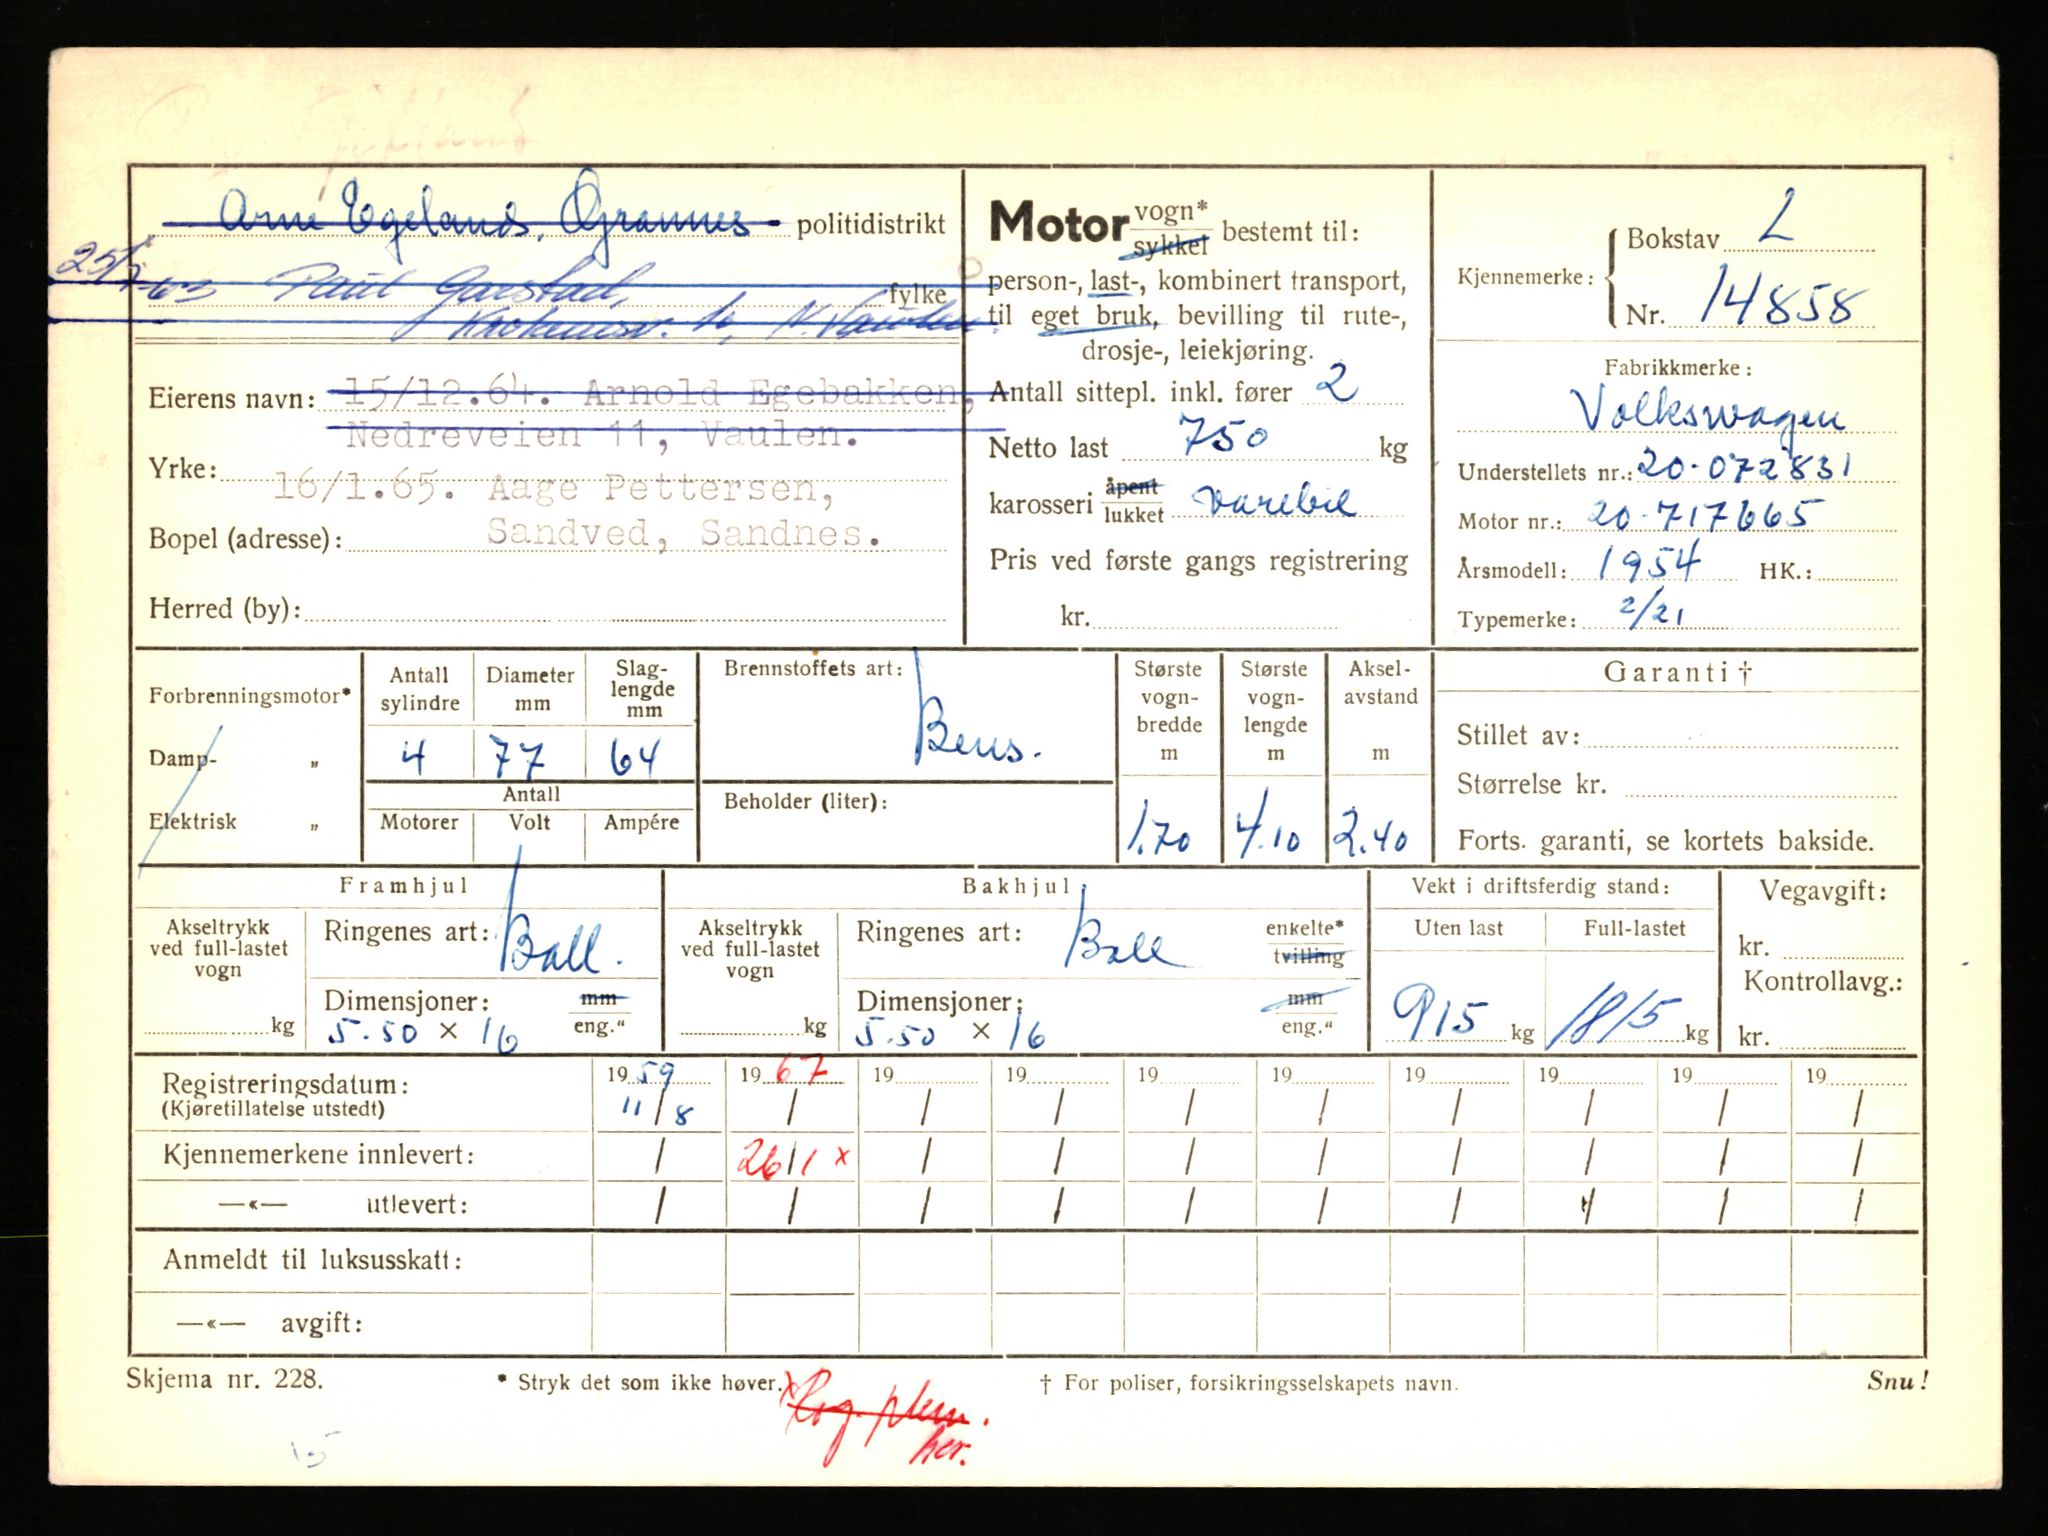 Arne Egeland, Grannes politidistrikt
Paul Garstad, fylke
Eierens navn: 15/12.64. Arnold Egebakken,
Nedreveien 11, Vaulen.
Yrke:
16/1.65. Aage Pettersen,
Bopel (adresse): Sandved, Sandnes.
Herred (by):
Motor vogn* sykkel bestemt til:
person-, last-, kombinert transport,
til eget bruk, bevilling til rute-,
drosje-, leiekjøring.
Antall sittepl. inkl. fører 2
Netto last 750 kg
karosseri åpent lukket varebil
Pris ved første gangs registrering
kr.
Kjennemerke: Bokstav L
Nr. 14858
Fabrikkmerke:
Volkswagen
Understellets nr.: 20-072831
Motor nr.: 20-717665
Årsmodell: 1954 HK.:
Typemerke: 2/21
Forbrenningsmotor*
Damp- "
Elektrisk "
Antall sylindre Diameter mm Slaglengde mm
4 77 64
Antall
Motorer Volt Ampére
Brennstoffets art:
Bens.
Beholder (liter):
Største vognbredde m
1.70
Største vognlengde m
4.10
Akselavstand m
2.40
Garanti †
Stillet av:
Størrelse kr.
Forts. garanti, se kortets bakside.
Framhjul
Akseltrykk ved full-lastet vogn
kg
Ringenes art: Ball.
Dimensjoner: mm
5.50 × 16 eng."
Bakhjul
Akseltrykk ved full-lastet vogn
kg
Ringenes art: Ball enkelte* tvilling
Dimensjoner: mm
5.50 × 16 eng."
Vekt i driftsferdig stand:
Uten last Full-lastet
915 kg 1815 kg
Vegavgift:
kr.
Kontrollavg.:
kr.
Registreringsdatum: 19 59 19 67 19 19 19 19 19 19 19 19
(Kjøretillatelse utstedt) 11/8 / / / / / / / / /
Kjennemerkene innlevert: / 26/1 x / / / / / / / /
—«— utlevert: / / / / / / / / / /
Anmeldt til luksusskatt:
—«— avgift:
Skjema nr. 228. * Stryk det som ikke høver. † For poliser, forsikringsselskapets navn. Snu!
x
her.
15